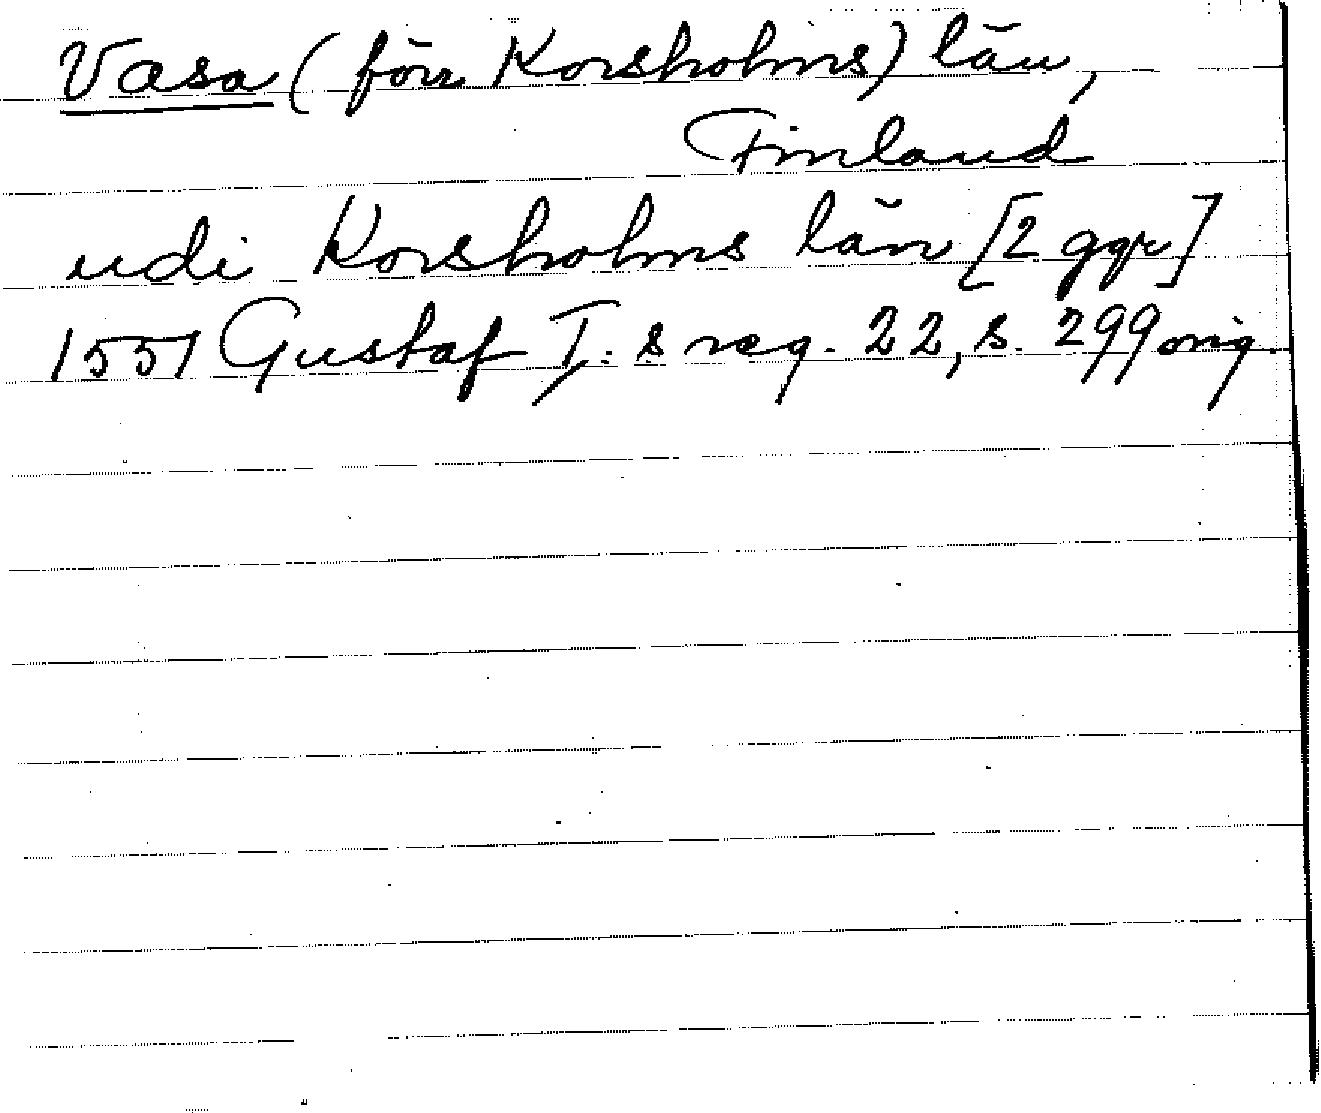 Vasa (förr Korsholms) län,
Finland
udi Korsholms län [2 ggr]
1551 Gustaf I:s reg. 22, s. 299 orig.